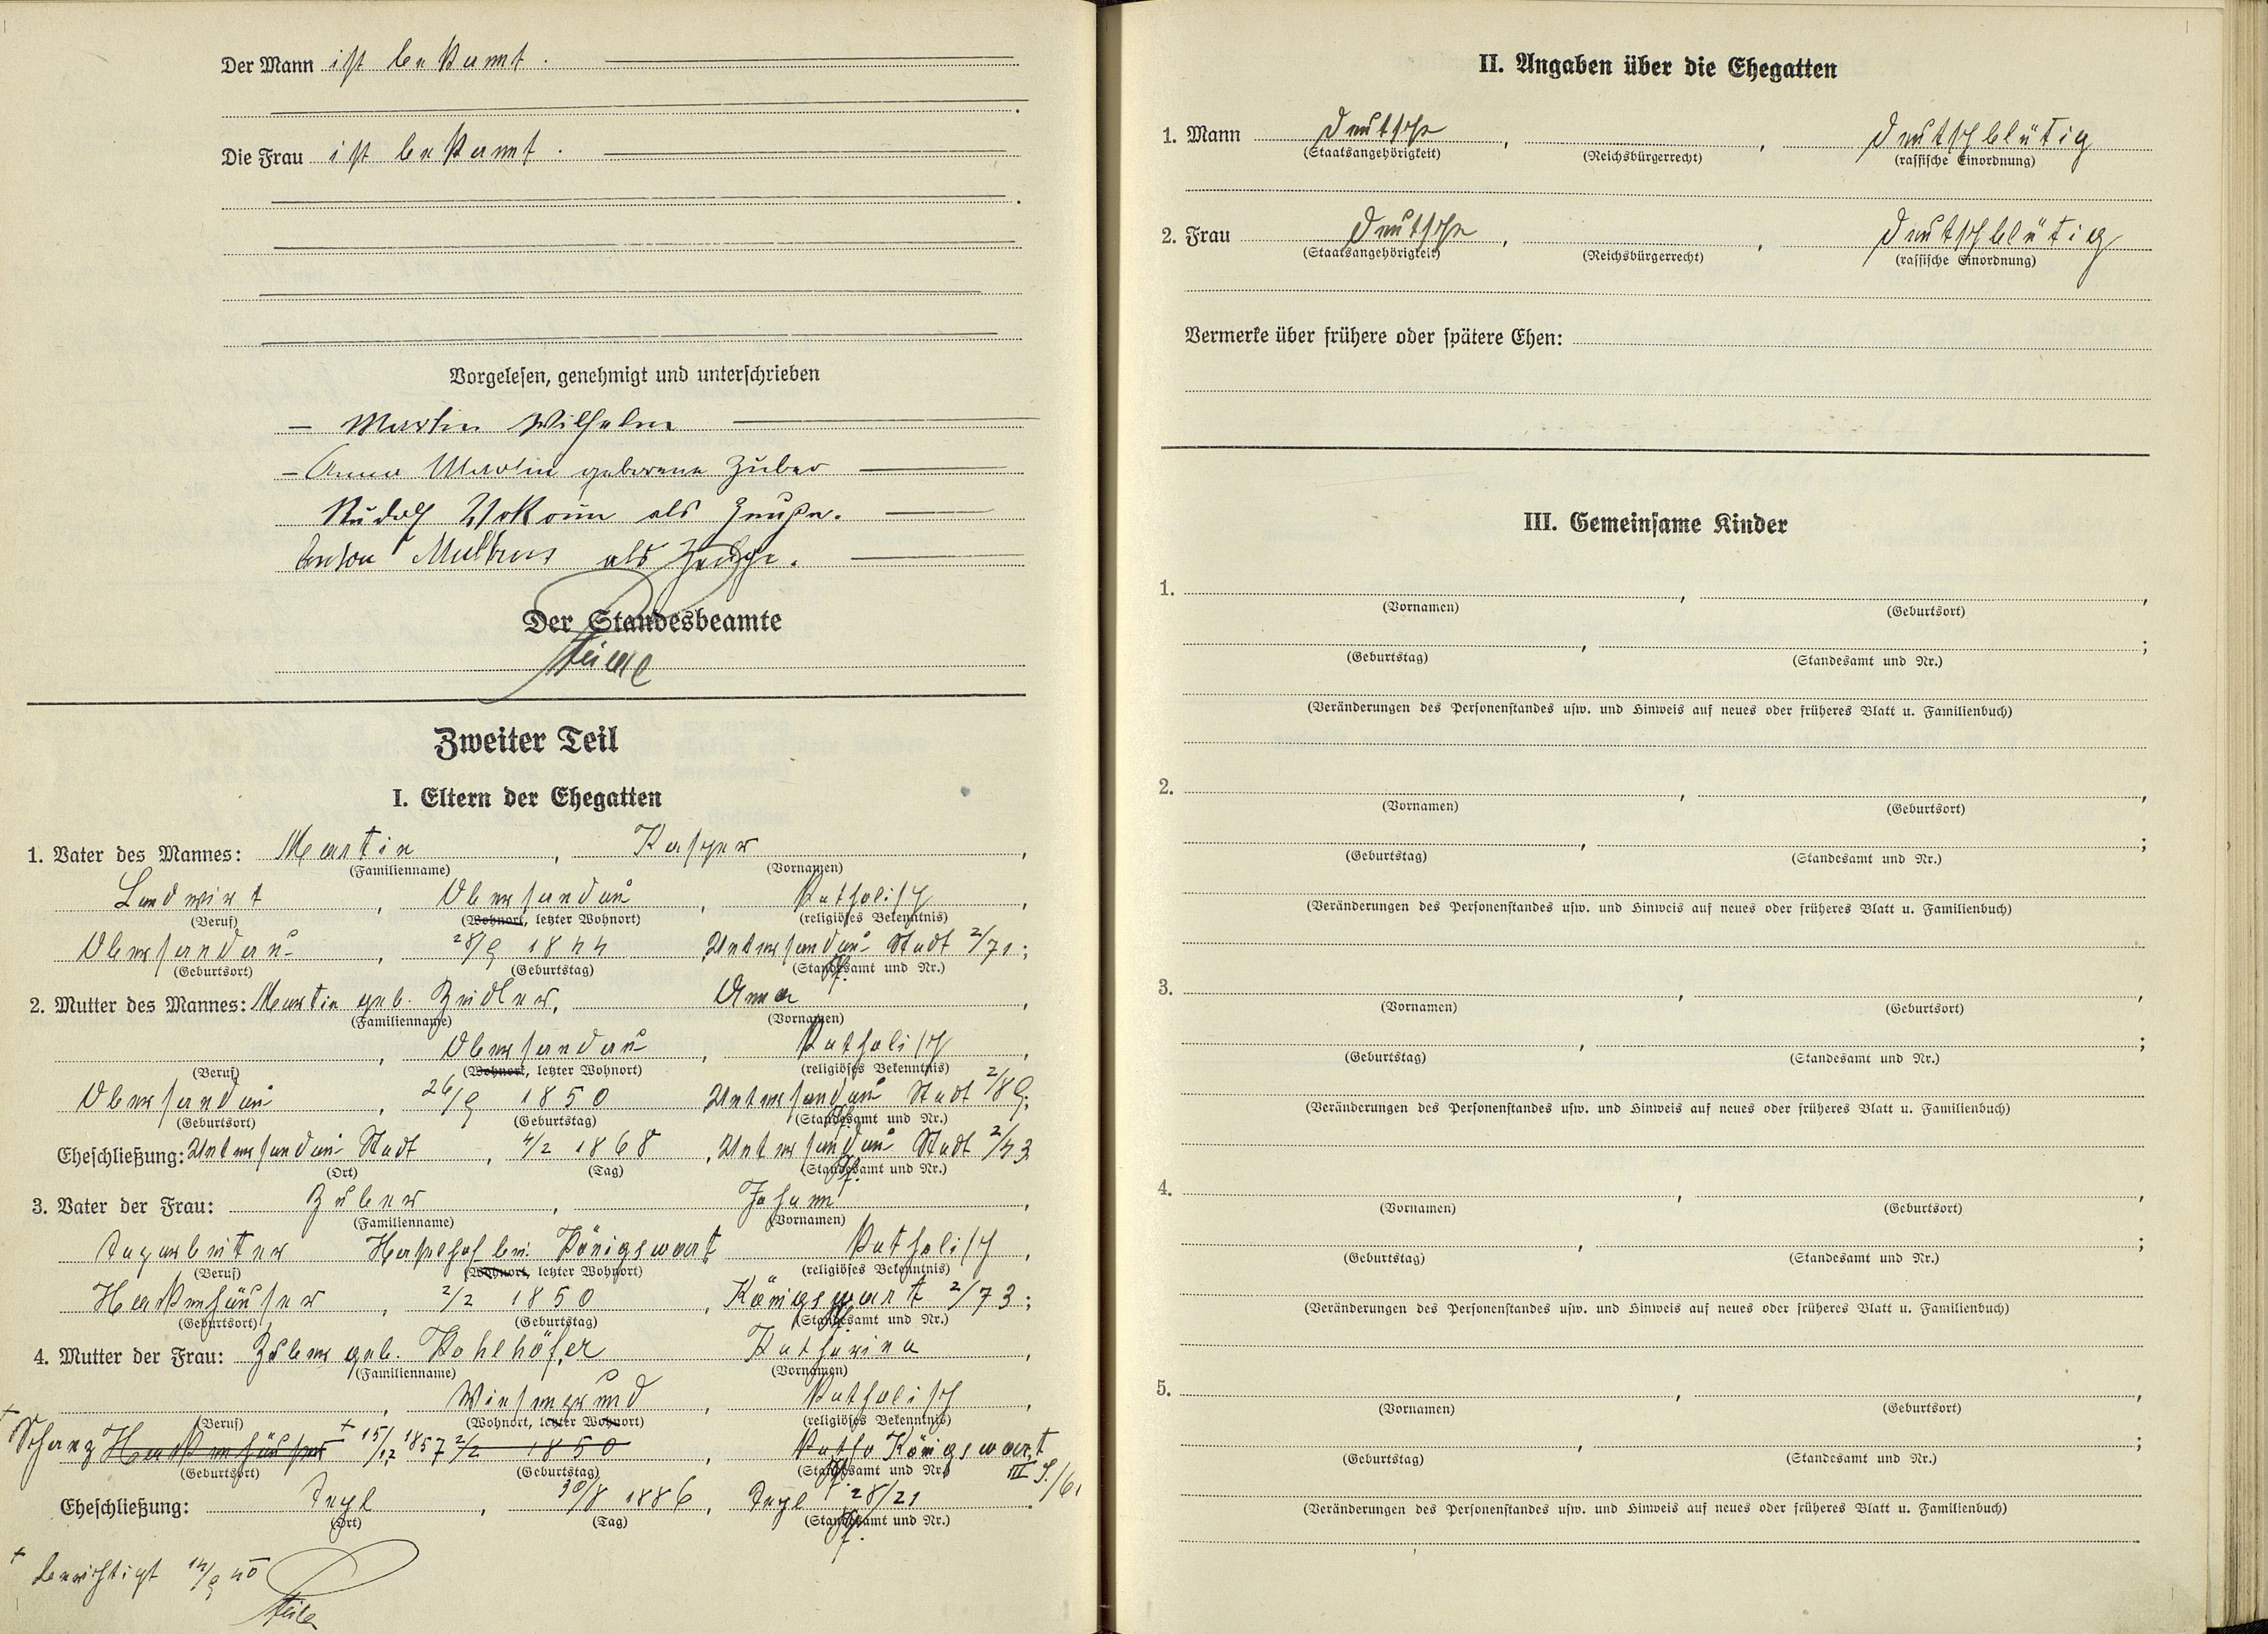 Der Mann ist bekannt.
Die Frau ist bekannt.
Vorgelesen, genehmigt und unterschrieben
– Martin Wilhelm
– Anna Martin geborene Zuber
Rudolf Wokoun als Zeuge.
Anton als Zeuge.
Der Standesbeamte
Zweiter Teil
I. Eltern der Ehegatten
1. Vater des Mannes: Martin, Kaspar,
(Familienname) (Vornamen)
Landwirt, Obersandau, katholisch,
(Beruf) (Wohnort, letzter Wohnort) (religiöses Bekenntnis)
Obersandau, 28/9 1844 Untersandau Stadt 2/71;
(Geburtsort) (Geburtstag) (Standesamt und Nr.)
2. Mutter des Mannes: Martin geb. Zeidler, Anna,
(Familienname) (Vornamen)
, Obersandau, katholisch,
(Beruf) (Wohnort, letzter Wohnort) (religiöses Bekenntnis)
Obersandau, 26/9 1850 Untersandau Stadt 2/89;
(Geburtsort) (Geburtstag) (Standesamt und Nr.)
Eheschließung: Untersandau Stadt, 4/2 1868, Untersandau Stadt 2/43
(Ort) (Tag) (Standesamt und Nr.)
3. Vater der Frau: Zuber, Johann,
(Familienname) (Vornamen)
Tagarbeiter Haselhof bei Königswart katholisch,
(Beruf) (Wohnort, letzter Wohnort) (religiöses Bekenntnis)
Markushäuser, 2/2 1850, Königswart 2/73;
(Geburtsort) (Geburtstag) (Standesamt und Nr.)
4. Mutter der Frau: Zuber geb. Kohlhöfer Katharina,
(Familienname) (Vornamen)
, katholisch,
(Beruf) (Wohnort, letzter Wohnort) (religiöses Bekenntnis)
+ Schanz + 15/12 1857 2/2 1850, Kath. Königswart III S./61
(Geburtsort) (Geburtstag) (Standesamt und Nr.)
Eheschließung: Tepl, 30/8 1886, Tepl 28/21.
(Ort) (Tag) (Standesamt und Nr.)
+ berichtigt 14/9 40
II. Angaben über die Ehegatten
1. Mann Deutsche, , Deutschblütig
(Staatsangehörigkeit) (Reichsbürgerrecht) (rassische Einordnung)
2. Frau Deutsche, , Deutschblütig
(Staatsangehörigkeit) (Reichsbürgerrecht) (rassische Einordnung)
Vermerke über frühere oder spätere Ehen:
III. Gemeinsame Kinder
1. , ,
(Vornamen) (Geburtsort)
, ;
(Geburtstag) (Standesamt und Nr.)
(Veränderungen des Personenstandes usw. und Hinweis auf neues oder früheres Blatt u. Familienbuch)
2. , ,
(Vornamen) (Geburtsort)
, ;
(Geburtstag) (Standesamt und Nr.)
(Veränderungen des Personenstandes usw. und Hinweis auf neues oder früheres Blatt u. Familienbuch)
3. , ,
(Vornamen) (Geburtsort)
, ;
(Geburtstag) (Standesamt und Nr.)
(Veränderungen des Personenstandes usw. und Hinweis auf neues oder früheres Blatt u. Familienbuch)
4. , ,
(Vornamen) (Geburtsort)
, ;
(Geburtstag) (Standesamt und Nr.)
(Veränderungen des Personenstandes usw. und Hinweis auf neues oder früheres Blatt u. Familienbuch)
5. , ,
(Vornamen) (Geburtsort)
, ;
(Geburtstag) (Standesamt und Nr.)
(Veränderungen des Personenstandes usw. und Hinweis auf neues oder früheres Blatt u. Familienbuch)